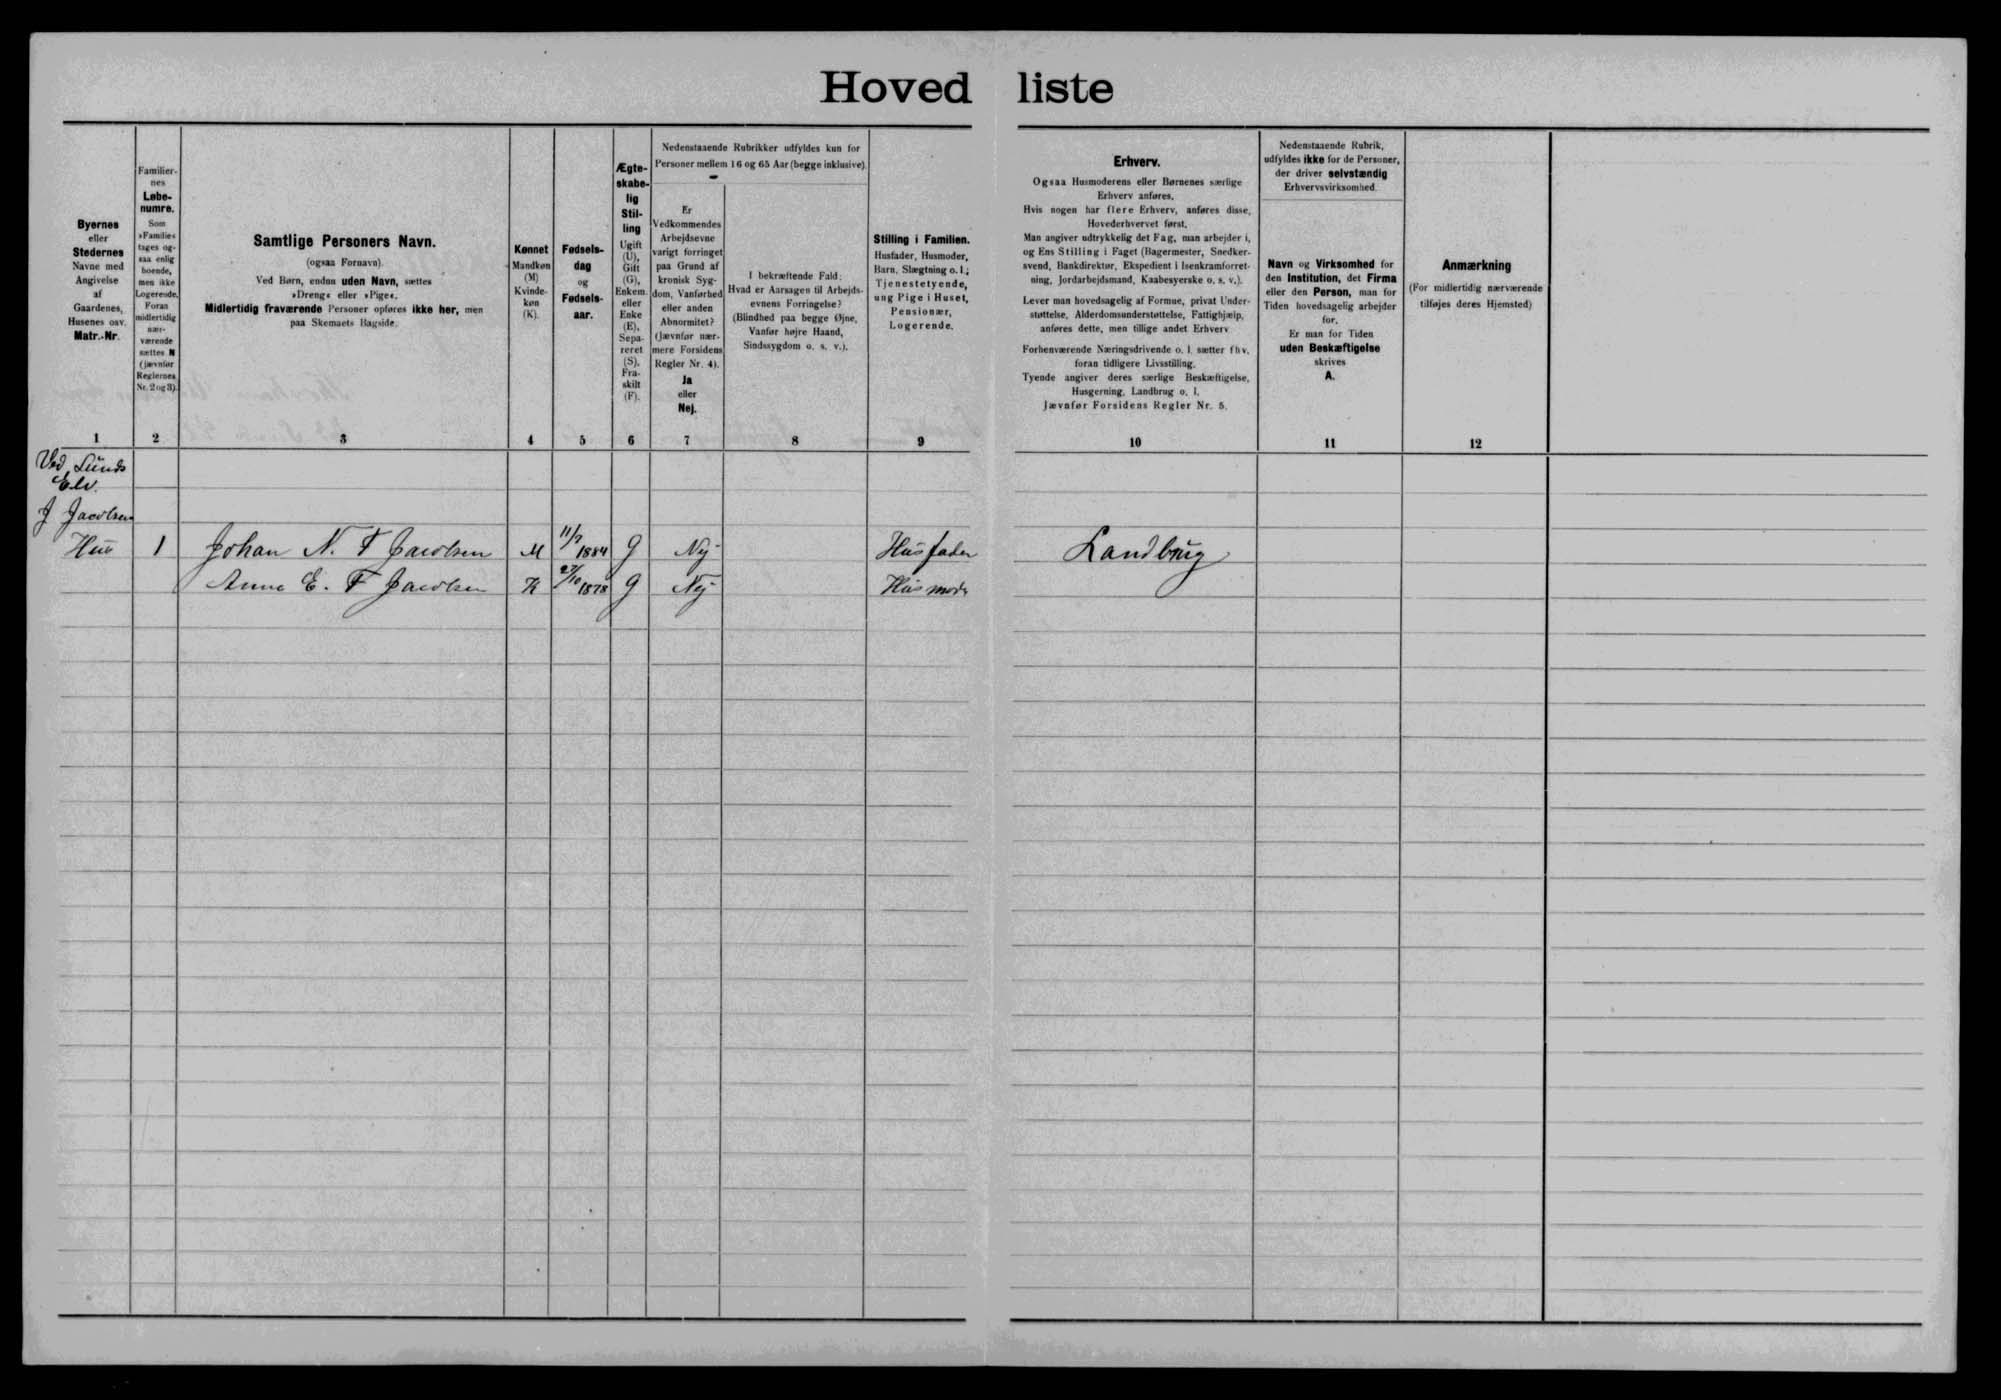 Hovedliste
Byernes
eller
Stedernes
Navne med
Angivelse
af
Gaardenes,
Husenes osv.
Matr.-Nr.
1
Familier-
nes
Løbe-
numre.
Som
»Familie«
tages og-
saa enlig
boende,
men ikke
Logerende.
Foran
midlertidig
nær-
værende
sættes N
(jævnfør
Reglernes
Nr. 2 og 3).
2
Samtlige Personers Navn.
(ogsaa Fornavn).
Ved Børn, endnu uden Navn, sættes
»Dreng« eller »Pige«.
Midlertidig fraværende Personer opføres ikke her, men
paa Skemaets Bagside.
3
Kønnet
Mandkøn
(M)
Kvinde-
køn
(K).
4
Fødsels-
dag
og
Fødsels-
aar.
5
Ægte-
skabe-
lig
Stil-
ling
Ugift
(U),
Gift
(G),
Enkem.
eller
Enke
(E),
Sepa-
reret
(S),
Fra-
skilt
(F).
6
Nedenstaaende Rubrikker udfyldes kun for
Personer mellem 16 og 65 Aar (begge inklusive).
Er
Vedkommendes
Arbejdsevne
varigt forringet
paa Grund af
kronisk Syg-
dom, Vanførhed
eller anden
Abnormitet?
(Jævnfør nær-
mere Forsidens
Regler Nr. 4).
Ja
eller
Nej.
7
I bekræftende Fald:
Hvad er Aarsagen til Arbejds-
evnens Forringelse?
(Blindhed paa begge Øjne,
Vanfør højre Haand,
Sindssygdom o. s. v.).
8
Stilling i Familien.
Husfader, Husmoder,
Barn, Slægtning o. l.;
Tjenestetyende,
ung Pige i Huset,
Pensionær,
Logerende.
9
Erhverv.
Ogsaa Husmoderens eller Børnenes særlige
Erhverv anføres.
Hvis nogen har flere Erhverv, anføres disse,
Hovederhvervet først.
Man angiver udtrykkelig det Fag, man arbejder i,
og Ens Stilling i Faget (Bagermester, Snedker-
svend, Bankdirektør, Ekspedient i Isenkramforret-
ning, Jordarbejdsmand, Kaabesyerske o. s. v.).
Lever man hovedsagelig af Formue, privat Under-
støttelse, Alderdomsunderstøttelse, Fattighjælp,
anføres dette, men tillige andet Erhverv.
Forhenværende Næringsdrivende o. l. sætter fhv.
foran tidligere Livsstilling.
Tyende angiver deres særlige Beskæftigelse,
Husgerning, Landbrug o. l.
Jævnfør Forsidens Regler Nr. 5.
10
Nedenstaaende Rubrik,
udfyldes ikke for de Personer,
der driver selvstændig
Erhvervsvirksomhed.
Navn og Virksomhed for
den Institution, det Firma
eller den Person, man for
Tiden hovedsagelig arbejder
for.
Er man for Tiden
uden Beskæftigelse
skrives
A.
11
Anmærkning
(For midlertidig nærværende
tilføjes deres Hjemsted)
12
Ved Lunds
Elv.
J Jacobsen
Hus 1 Johan N. F Jacobsen M 11/2 1884 G Nej Husfader Landbrug
Anne E. F Jacobsen K 27/10 1878 G Nej Husmoder